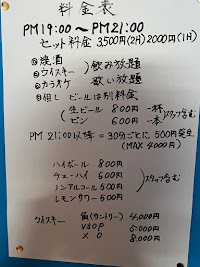 料金表
PM19:00〜PM21:00
セット料金 3,500円(2H)2000円(1H)
◎焼酎
◎ウイスキー 飲み放題
◎カラオケ 歌い放題
◎但し ビールは別料金
生ビール 800円 一杯 スタッフ含む
ビン 600円 一本
PM 21:00以降=30分ごとに500円発生
(MAX 4000円)
ハイボール 800円
ウューハイ 600円 スタッフ含む
ノンアルコール 500円
レモンサワー 500円
ウイスキー 角(サントリー) 4,000円
VSOP 6.000円
XO 8.000円